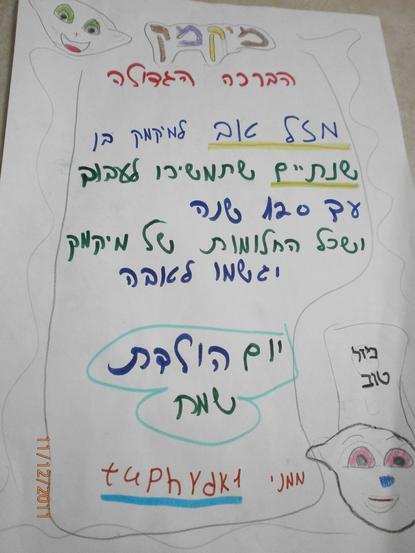 מיקמק
הברכה הגדולה
מזל טוב למיקמק בן
שנתיים שתמשיכו לעבוב
עד 120 שנה
ושכל החלומות של מיקמק
יגשמו לאובה
יום הולדת
שמח
מזל
טוב
ממני tuphydk1
11/12/2011